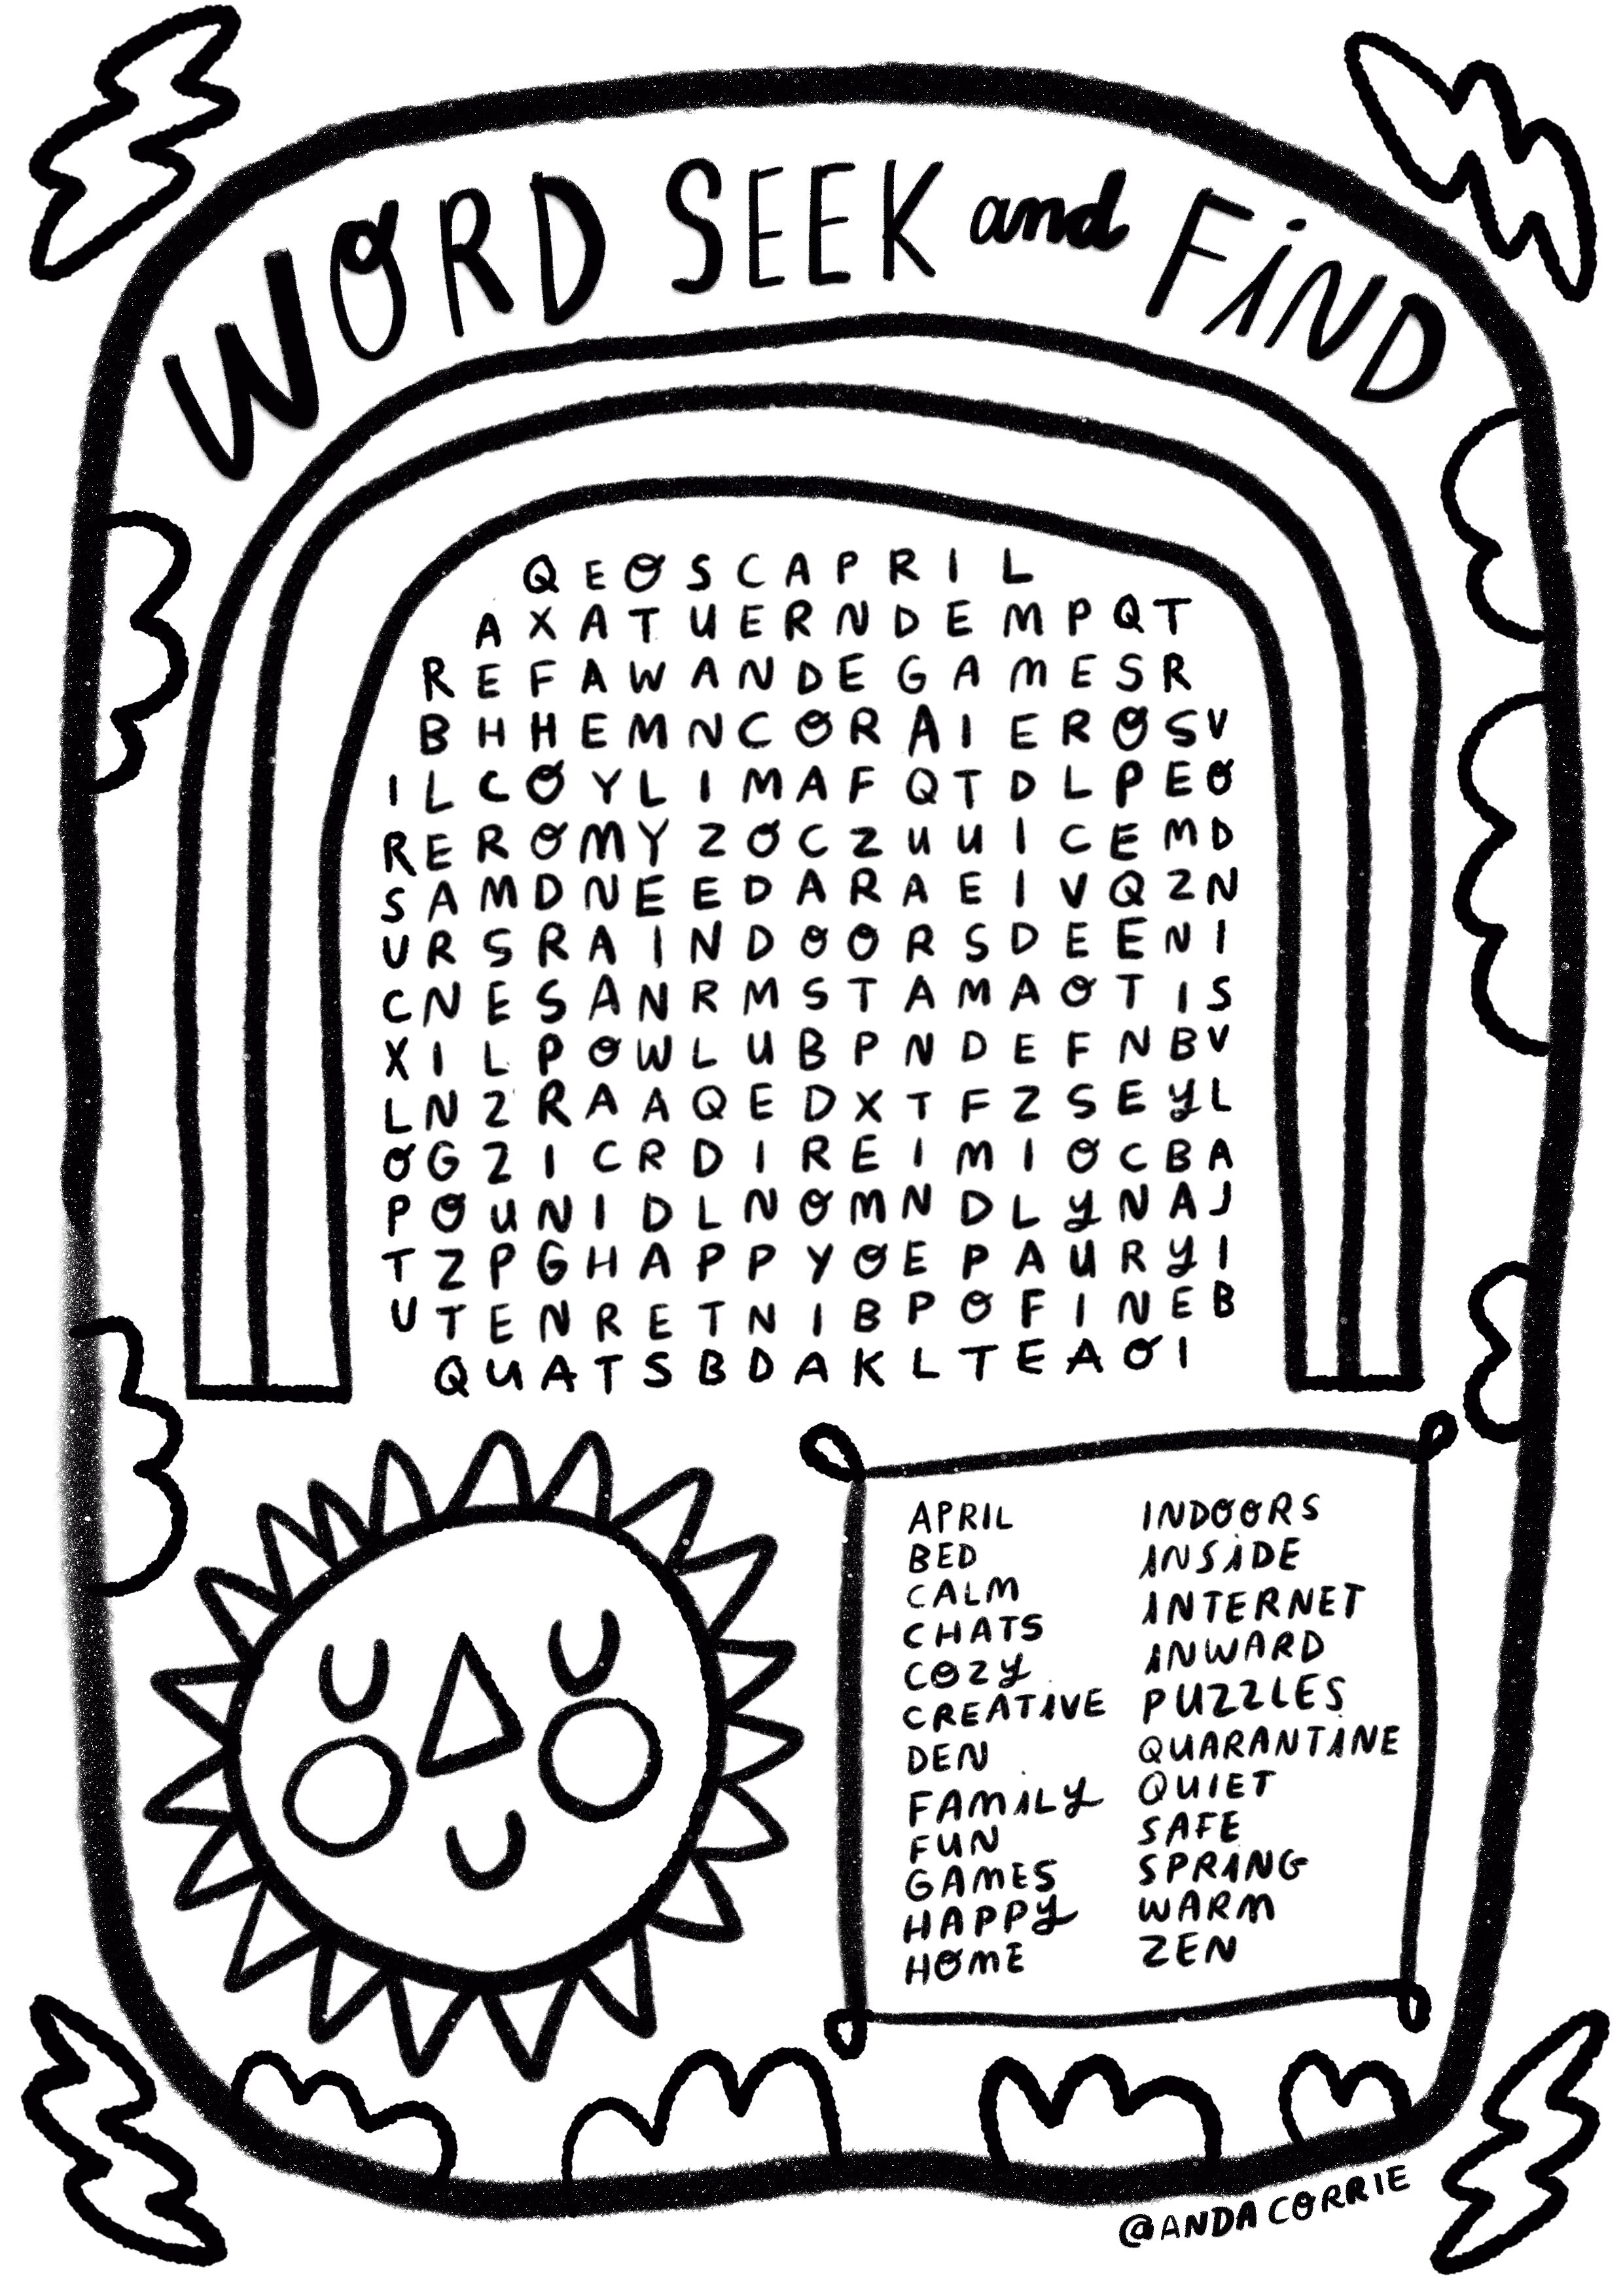 WORD SEEK and FiND
Q E O S C A P R I L
A X A T U E R N D E M P Q T
R E F A W A N D E G A M E S R
B H H E M N C O R A I E R O S V
I L C O Y L I M A F Q T D L P E O
R E R O M Y Z O C Z U U I C E M D
S A M D N E E D A R A E I V Q Z N
U R S R A I N D O O R S D E E N I
C N E S A N R M S T A M A O T I S
X I L P O W L U B P N D E F N B V
L N Z R A A Q E D X T F Z S E Y L
O G Z I C R D I R E I M I O C B A
P O U N I D L N O M N D L Y N A J
T Z P G H A P P Y O E P A U R Y I
U T E N R E T N I B P O F I N E B
Q U A T S B D A K L T E A O I
APRIL
BED
CALM
CHATS
COZY
CREATiVE
DEN
FAMiLY
FUN
GAMES
HAPPY
HOME
INDOORS
iNSiDE
iNTERNET
iNWARD
PUZZLES
QUARANTiNE
QUIET
SAFE
SPRiNG
WARM
ZEN
@ANDACORRIE